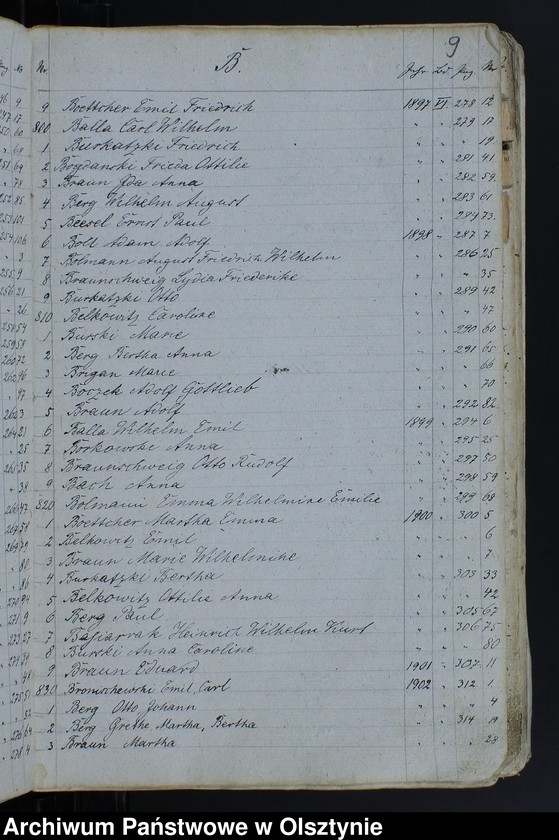 9
B.
Nr Jahr Bd. Pag. Nr
9 Boettcher Emil Friedrich 1897 VI 278 12
800 Balla Carl Wilhelm " " 279 17
1 Burkatzki Friedrich " " " 19
2 Bogdanski Frieda Ottilie " " 281 41
3 Braun Ida Anna " " 282 59
4 Berg Wilhelm August " " 283 61
5 Beesel Ernst Paul " " 284 73
6 Boll Adam Adolf 1898 " 287 7
7 Bolmann August Friedrich Wilhelm " " 286 25
8 Braunschweig Lydia Friederike " " " 35
9 Burkatzki Otto " " 289 42
810 Belkowitz Caroline " " " 47
1 Burski Marie " " 290 60
2 Berg Bertha Anna " " 291 65
3 Brigan Marie " " " 66
4 Boczek Adolf Gottlieb " " " 70
5 Braun Adolf " " 292 82
6 Balla Wilhelm Emil 1899 " 294 6
7 Borkowski Anna " " 295 25
8 Braunschweig Otto Rudolf " " 297 50
9 Bach Anna " " 298 59
820 Bolmann Emma Wilhelmine Emilie " " 299 68
1 Boettcher Martha Emma 1900 " 300 5
2 Belkowitz Emil " " " 6
3 Braun Marie Wilhelmine " " " 7
4 Burkatzki Bertha " " 303 33
5 Belkowitz Ottilie Anna " " " 42
6 Berg Paul " " 305 67
7 Heinrich Wilhelm Kurt " " 306 75
8 Burski Anna Caroline " " " 80
9 Braun Eduard 1901 " 307 11
830 Bronischewski Emil, Carl 1902 " 312 1
1 Berg Otto Johann " " " 4
2 Berg Grethe, Martha, Bertha " " 314 19
3 Braun Martha " " " 28
Archiwum Państwowe w Olsztynie